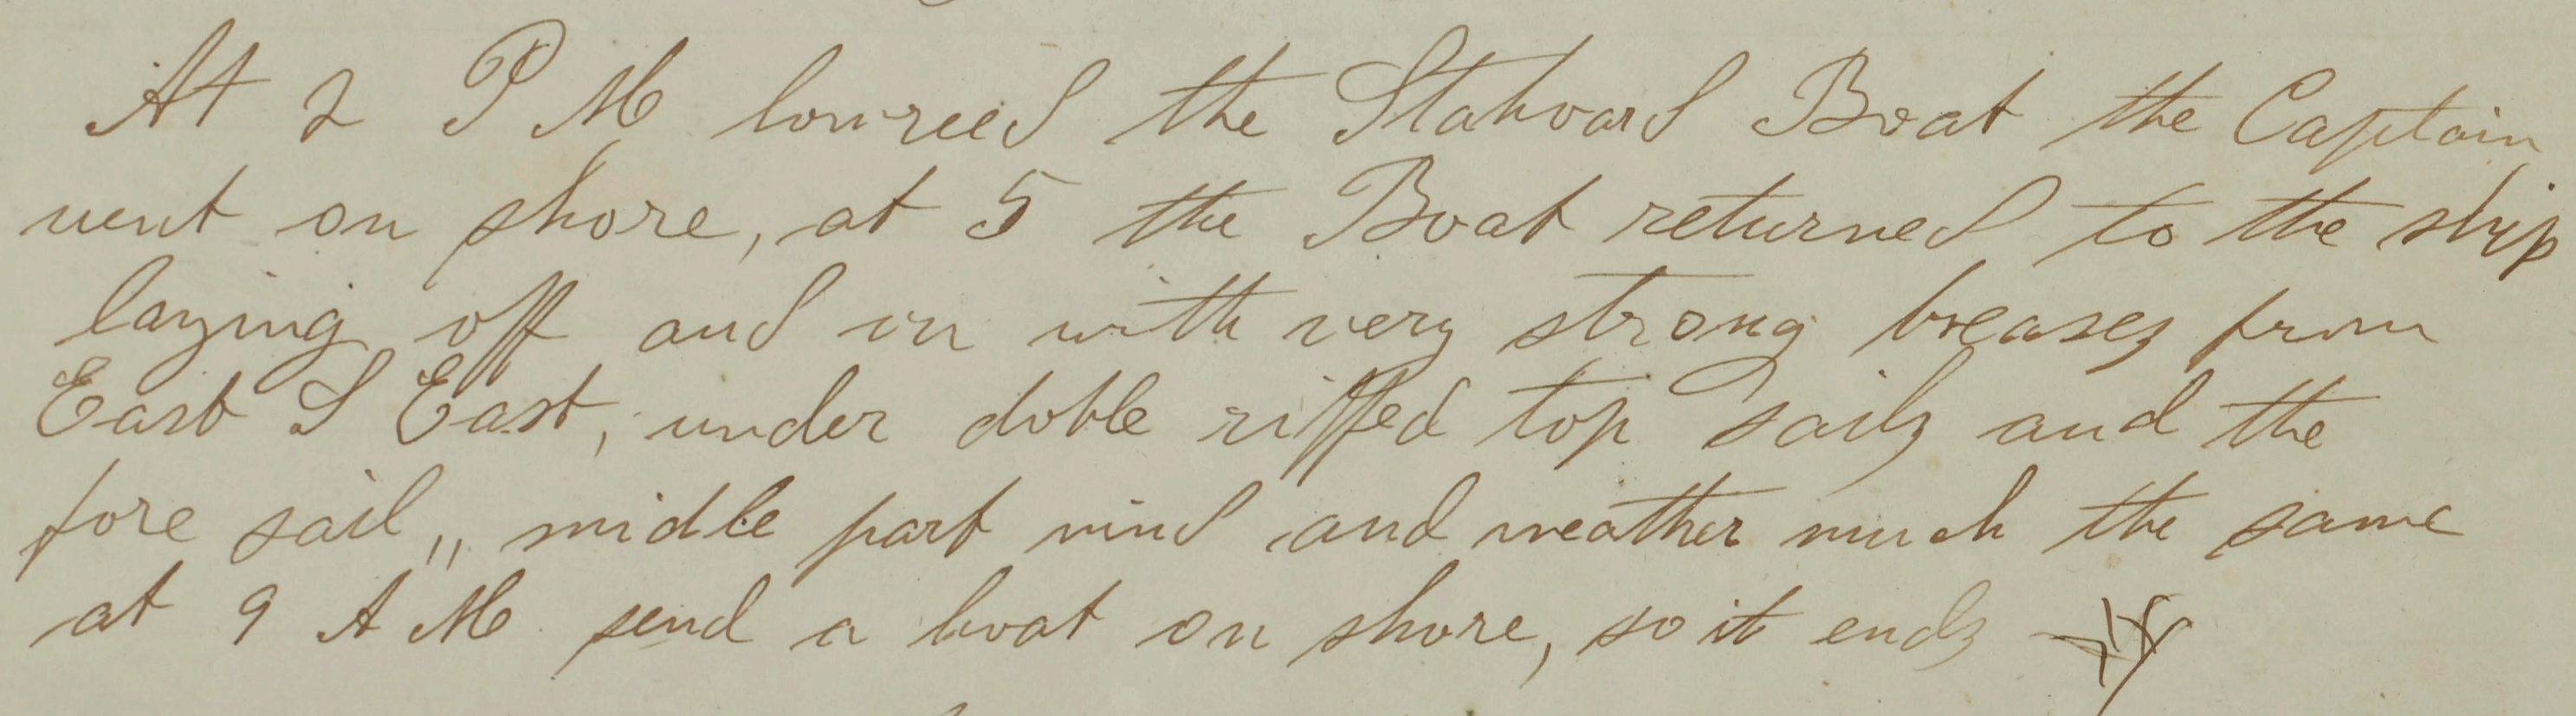 At 2 P M lowreed the Stahoard Boat the Captain
went on shore, at 5 the Boat returned to the ship
laying off and on with very strong breases from
East S East, under doble riffed top sails and the
fore sail,, midle part wind and weather much the same
at 9 A M send a boat on shore, so it ends